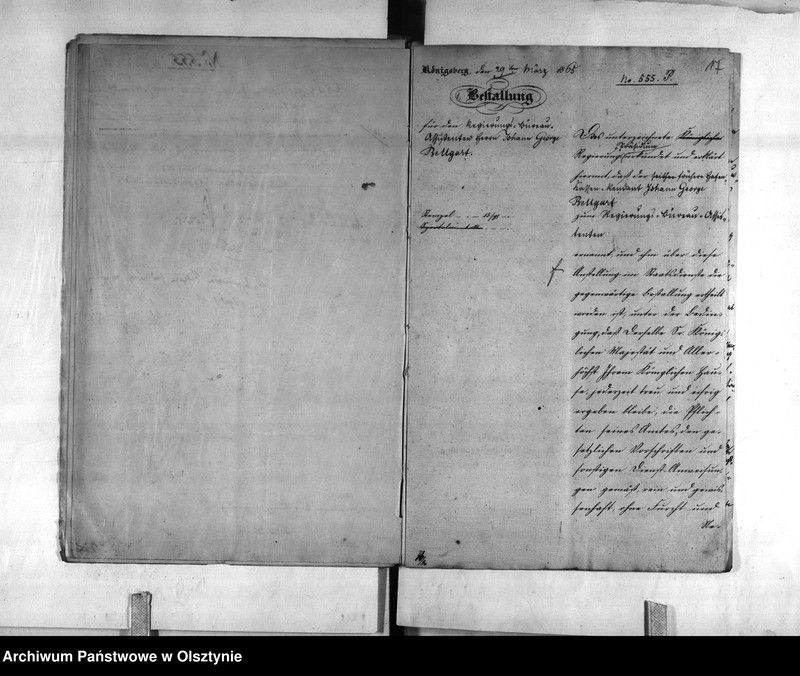 17
No. 555. P.
Königsberg, den 29ten März 1865
Bestallung
für den Regierungs-Bureau-
Assistenten Herrn Johann George
Bellgart.
Stempel - - 15 sgr -
Das unterzeichnete Königliche
Präsidium
Regierungs beurkundet und erklärt
hiermit, daß der seither frühere Hafen-
Kassen-Rendant Johann George
Bellgart
zum Regierungs-Bureau-Assis-
tenten
ernannt, und ihm über diese
Anstellung im Staatsdienste die
gegenwärtige Bestallung ertheilt
worden ist, unter der Bedin-
gung, daß Derselbe Sr. König-
lichen Majestät und Aller-
höchst Ihrem Königlichen Hau-
se, jederzeit treu und eifrig
ergeben bleibe, die Pflich-
ten seines Amtes, den ge-
setzlichen Vorschriften und
sonstigen Dienst-Anweisun-
gen gemäß, rein und gewis-
senhaft, ohne Furcht und
Archiwum Państwowe w Olsztynie